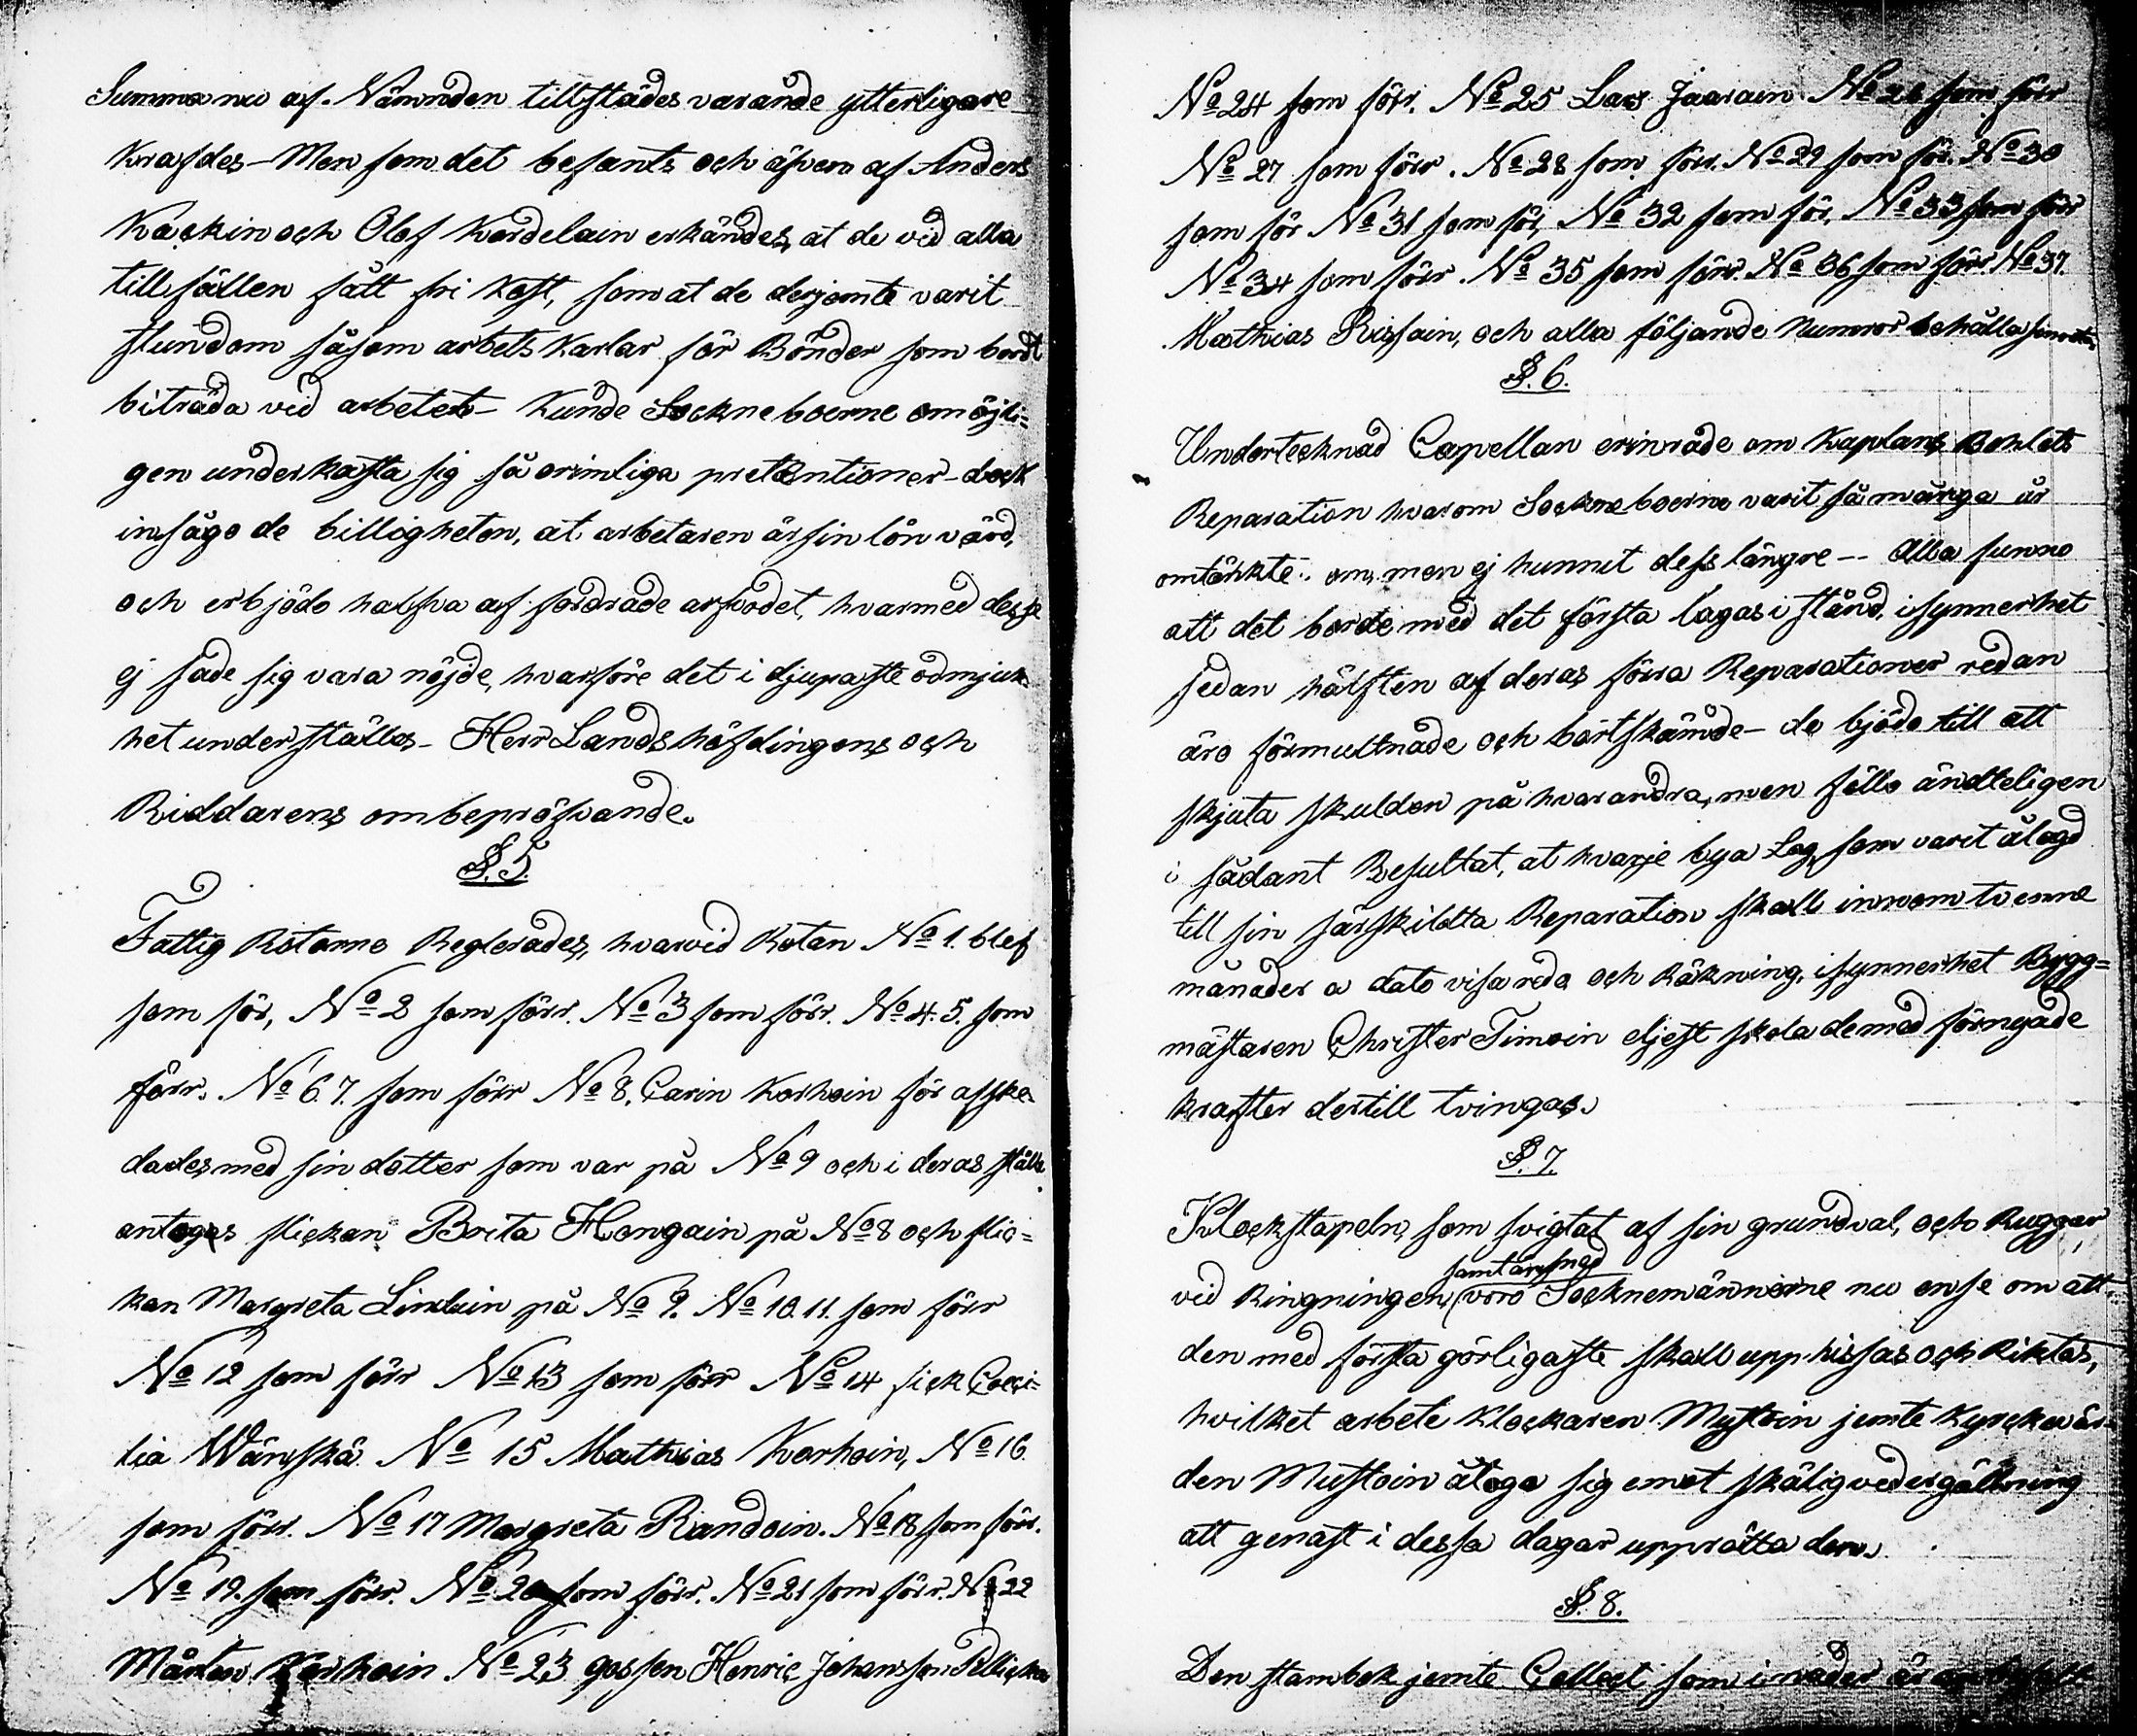 Summa nu af Nämnden tillstädes varande ytterligare
Krafdes – Men som det befants och äfven af Anders
Käckin och Olof Kardelain erkändes, at de vid alla
tillfällen fått fri Kost, som at de derjemte varit
stundom såsom arbets Karlar för Bönder som bordt
biträda vid arbetet – Kunde Sockneboerne omöjli=
gen underkasta sig så orimliga pretentioner – dock
insågo de billigheten, at arbetaren är sin lön värd,
och erbjödo halfva af fordrade arfvodet, hvarmed desse
ej sade sig vara nöjde, hvarföre det i djupaste ödmjuk-
het underställes – Herr Landshöfdingens och
Riddarens ombepröfvande.
§. 5.
Fattig Rotarne Reglerades, hvarvid Rotan No 1. blef
som för, No 2 som förr. No 3 som förr. No 4. 5. som
förr. No 6. 7. som förr No 8. Carin Korhoin för afske-
dades med sin dotter som var på No 9 och i deras ställe
antogs flickan Brita Hongain på No 8 och flic=
kan Margreta Lindain på No 9. No 10. 11. som förr
No 12 som förr No 13 som förr No 14 fick Coeci=
lia Wänskä No 15 Mathias Korhoin, No 16
som förr. No 17 Margreta Randoin. No 18 som förr.
No 19. som förr. No 20 som förr. No 21 som förr. No 22
Mårten Korhoin No 23 gossen Henric Johansson Pellicka
No 24 som förr. No 25 Lars Jäärain No 26 som förr
No 27 som förr. No 28 som förr. No 29 som för. No 30
som för No 31 som för, No 32 som för, No 33 som förr
No 34 som förr. No 35 som förr. No 36 som förr No 37.
Mathias Rissain, och alla följande Numror behålla
§. 6.
Undertecknad Capellan erinrade om Kaplans Bohlets
Reparation hvarom Sockneboerne varit så många år
omtänkte om, men ej hunnit dess längre -- Alla funno
att det borde med det första lagas i stånd, i synnerhet
sedan hälften af deras förra Reparationer redan
äro förmultnade och bortskämde – de bjödo till att
skjuta skulden på hvarandra, men föllo ändteligen
i sådant Resultat, at hvarje bya Lag, som varit ålagd
till sin särskildta Reparation skall innom tvenne
månader a dato visa reda och Räkning, i synnerhet Bygg=
mästaren Christer Timoin eljest skola de med förnyade
krafter dertill tvingas.
§. 7.
Klockstapeln, som svigtat af sin grundval, och Ruggar,
samt är sned
vid Ringningen, voro Socknemännerne nu ense om att
den med första görligaste skall upphissas och Riktas,
hvilket arbete Klockaren Mustoin jemte Kyrckovär-
den Mustoin åtoga sig emot skälig vedergällning
att genast i dessa dagar upprätta den.
§. 8.
Den stambok jemte Collect som